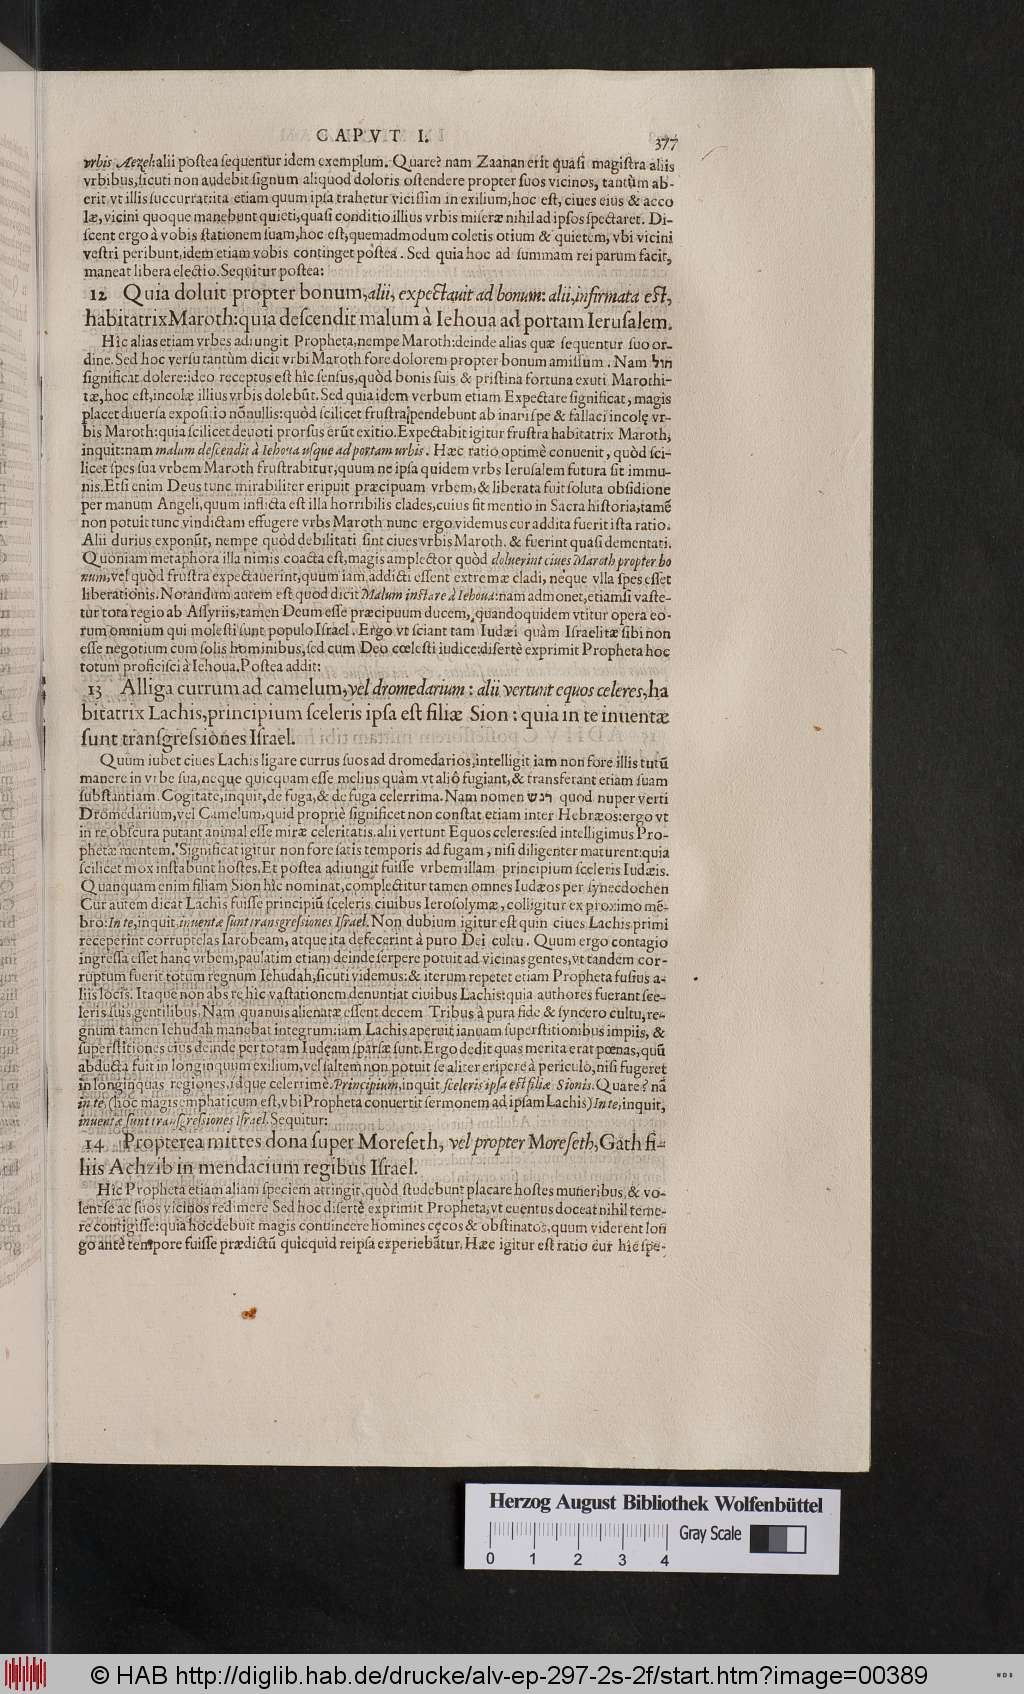 CAPVT I. 377
vrbis Aezel: alii postea sequentur idem exemplum. Quare? nam Zaanan erit quasi magistra aliis
vrbibus, sicuti non audebit signum aliquod doloris ostendere propter suos vicinos, tantùm ab-
erit vt illis succurrat: ita etiam quum ipsa trahetur vicissim in exilium, hoc est, ciues eius & acco
læ, vicini quoque manebunt quieti, quasi conditio illius vrbis miseræ nihil ad ipsos spectaret. Di-
scent ergo à vobis stationem suam, hoc est, quemadmodum coletis otium & quietem, vbi vicini
vestri peribunt, idem etiam vobis continget postea. Sed quia hoc ad summam rei parum facit,
maneat libera electio. Sequitur postea:
12 Quia doluit propter bonum, alii, expectauit ad bonum: alii, infirmata est,
habitatrix Maroth: quia descendit malum à Iehoua ad portam Ierusalem.
Hîc alias etiam vrbes adiungit Propheta, nempe Maroth: deinde alias quæ sequentur suo or-
dine. Sed hoc versu tantùm dicit vrbi Maroth fore dolorem propter bonum amissum. Nam חול
significat dolere: ideo receptus est hîc sensus, quòd bonis suis & pristina fortuna exuti Marothi-
tæ, hoc est, incolæ illius vrbis dolebūt. Sed quia idem verbum etiam Expectare significat, magis
placet diuersa expositio nōnullis: quòd scilicet frustra pendebunt ab inari spe & fallaci incolę vr-
bis Maroth: quia scilicet deuoti prorsus erūt exitio. Expectabit igitur frustra habitatrix Maroth,
inquit: nam malum descendit à Iehoua usque ad portam urbis. Hæc ratio optimè conuenit, quòd sci-
licet spes sua vrbem Maroth frustrabitur, quum ne ipsa quidem vrbs Ierusalem futura sit immu-
nis. Etsi enim Deus tunc mirabiliter eripuit præcipuam vrbem, & liberata fuit soluta obsidione
per manum Angeli, quum inflicta est illa horribilis clades, cuius fit mentio in Sacra historia, tamē
non potuit tunc vindictam effugere vrbs Maroth nunc ergo videmus cur addita fuerit ista ratio.
Alii durius exponūt, nempe quòd debilitati sint ciues vrbis Maroth, & fuerint quasi dementati.
Quoniam metaphora illa nimis coacta est, magis amplector quòd doluerint ciues Maroth propter bo
num, vel quòd frustra expectauerint, quum iam addicti essent extremæ cladi, neque vlla spes esset
liberationis. Notandum autem est quod dicit Malum instare à Iehoua: nam admonet, etiamsi vaste-
tur tota regio ab Assyriis, tamen Deum esse præcipuum ducem, quandoquidem vtitur opera eo-
rum omnium qui molesti sunt populo Israel. Ergo vt sciant tam Iudæi quàm Israelitæ sibi non
esse negotium cum solis hominibus, sed cum Deo cœlesti iudice: disertè exprimit Propheta hoc
totum proficisci à Iehoua. Postea addit:
13 Alliga currum ad camelum, vel dromedarium: alii vertunt equos celeres, ha
bitatrix Lachis, principium sceleris ipsa est filiæ Sion: quia in te inuentæ
sunt transgressiones Israel.
Quum iubet ciues Lachis ligare currus suos ad dromedarios, intelligit iam non fore illis tutū
manere in vrbe sua, neque quicquam esse melius quàm vt aliò fugiant, & transferant etiam suam
substantiam. Cogitate, inquit, de fuga, & de fuga celerrima. Nam nomen רכש quod nuper verti
Dromedarium, vel Camelum, quid propriè significet non constat etiam inter Hebræos: ergo vt
in re obscura putant animal esse miræ celeritatis. alii vertunt Equos celeres: sed intelligimus Pro-
phetæ mentem. Significat igitur non fore satis temporis ad fugam, nisi diligenter maturent: quia
scilicet mox instabunt hostes. Et postea adiungit fuisse vrbem illam principium sceleris Iudæis.
Quanquam enim filiam Sion hîc nominat, complectitur tamen omnes Iudæos per synecdochen
Cur autem dicat Lachis fuisse principiū sceleris ciuibus Ierosolymæ, colligitur ex proximo mē-
bro: In te, inquit, inuentæ sunt transgressiones Israel. Non dubium igitur est quin ciues Lachis primi
receperint corruptelas Iarobeam, atque ita defecerint à puro Dei cultu. Quum ergo contagio
ingressa esset hanc vrbem, paulatim etiam deinde serpere potuit ad vicinas gentes, vt tandem cor-
ruptum fuerit totum regnum Iehudah, sicuti videmus: & iterum repetet etiam Propheta fusius a-
liis locis. Itaque non abs re hîc vastationem denuntiat ciuibus Lachis: quia authores fuerant sce-
leris suis gentilibus. Nam quanuis alienatæ essent decem Tribus à pura fide & syncero cultu, re-
gnum tamen Iehudah manebat integrum: iam Lachis aperuit ianuam superstitionibus impiis, &
superstitiones eius deinde per totam Iudęam sparsæ sunt. Ergo dedit quas merita erat pœnas, quū
abducta fuit in longinquum exilium, vel saltem non potuit se aliter eripere à periculo, nisi fugeret
in longinquas regiones, idque celerrimè. Principium, inquit sceleris ipsa est filiæ Sionis. Quare? nā
in te, (hoc magis emphaticum est, vbi Propheta conuertit sermonem ad ipsam Lachis) In te, inquit,
inuentæ sunt transgressiones Israel. Sequitur:
14 Propterea mittes dona super Moreseth, vel propter Moreseth, Gath fi-
liis Achzib in mendacium regibus Israel.
Hîc Propheta etiam aliam speciem attingit, quòd studebunt placare hostes muneribus, & vo-
lent se ac suos vicinos redimere Sed hoc disertè exprimit Propheta, vt euentus doceat nihil teme-
re contigisse: quia hoc debuit magis conuincere homines cęcos & obstinatos, quum viderent lon
go antè tempore fuisse prædictū quicquid reipsa experiebātur. Hæc igitur est ratio cur hîc spe-
Herzog August Bibliothek Wolfenbüttel
0 1 2 3 4 Gray Scale
© HAB http://diglib.hab.de/drucke/alv-ep-297-2s-2f/start.htm?image=00389
WDB